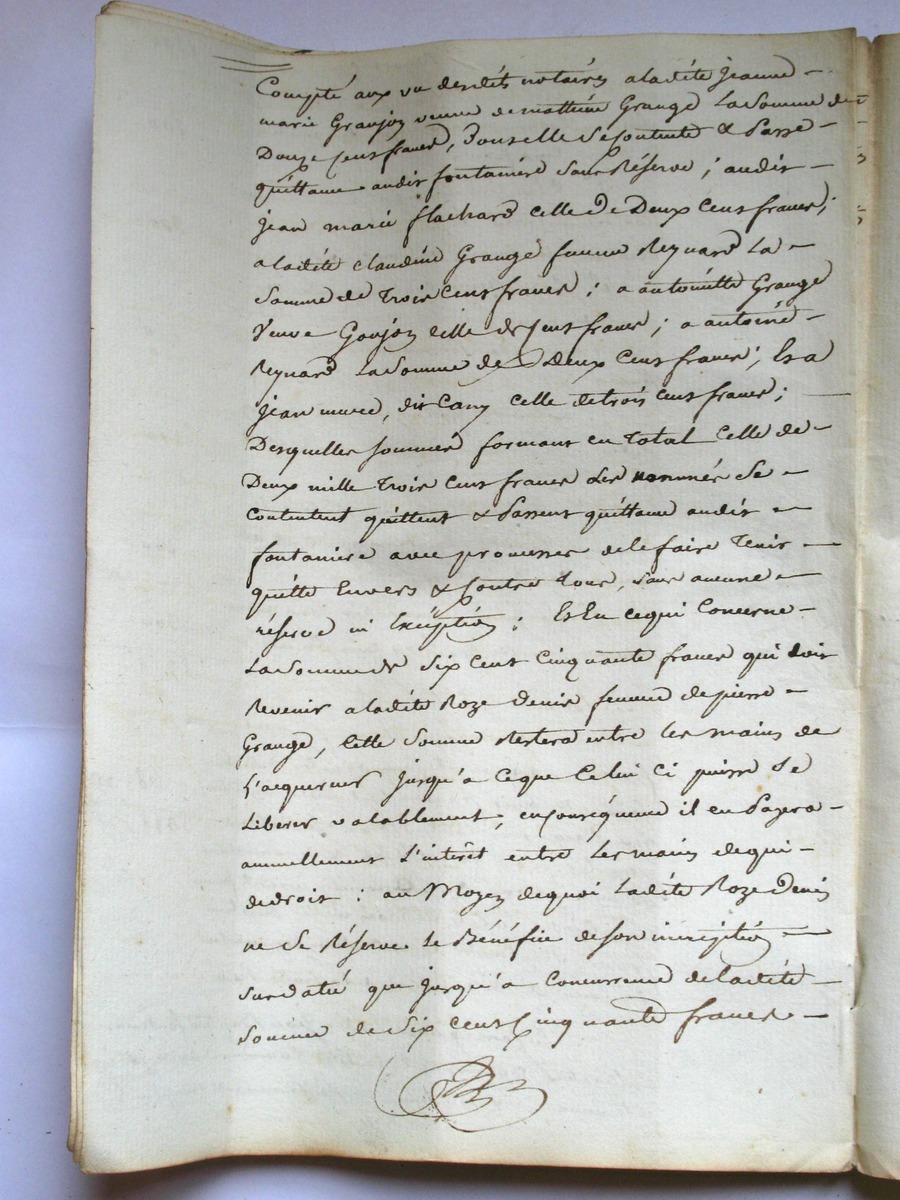 Compté aux vu desdits notaires a ladite jeanne
marie Granjon veuve de mathieu Grange La Somme de
Douze cens francs, Dont elle Se contente & Passe
quittance audit fontaniere Sans Réserve ; audit
jean marie flachard celle De Deux Cens francs ;
a ladite claudine Grange femme Reynard La
Somme de trois Cens francs ; a antoinette Grange
Veuve Goujon celle de cens francs ; a antoine
Reynard La Somme de Deux Cens francs ; Et a
jean dit Cany celle de trois cens francs ;
Desquelles sommes formant en total Celle de
Deux mille trois Cens francs Les nommés Se
contentent quittent & Passent quittance audit
fontaniere avec promesses de le faire tenir
quitte Envers & contre tous, sans aucune
réserve ni Exception ; Et En ce qui Concerne
La Somme de Six Cent Cinquante francs qui doit
Revenir a ladite Roze Denis femme de pierre
Grange, Cette Somme Restera entre Les mains de
L'acquereur jusqu'a Ce que Celui Ci puisse Se
Liberer valablement, en conséquence il en Payera
annuellement L'intérêt entre Les mains de qui
de droit : au Moyen de quoi Ladite Roze Denis
ne Se Réserve Le Bénéfice de son inscription
que jusqu'a Concurrence de ladite
Somme de Six cens Cinquante francs